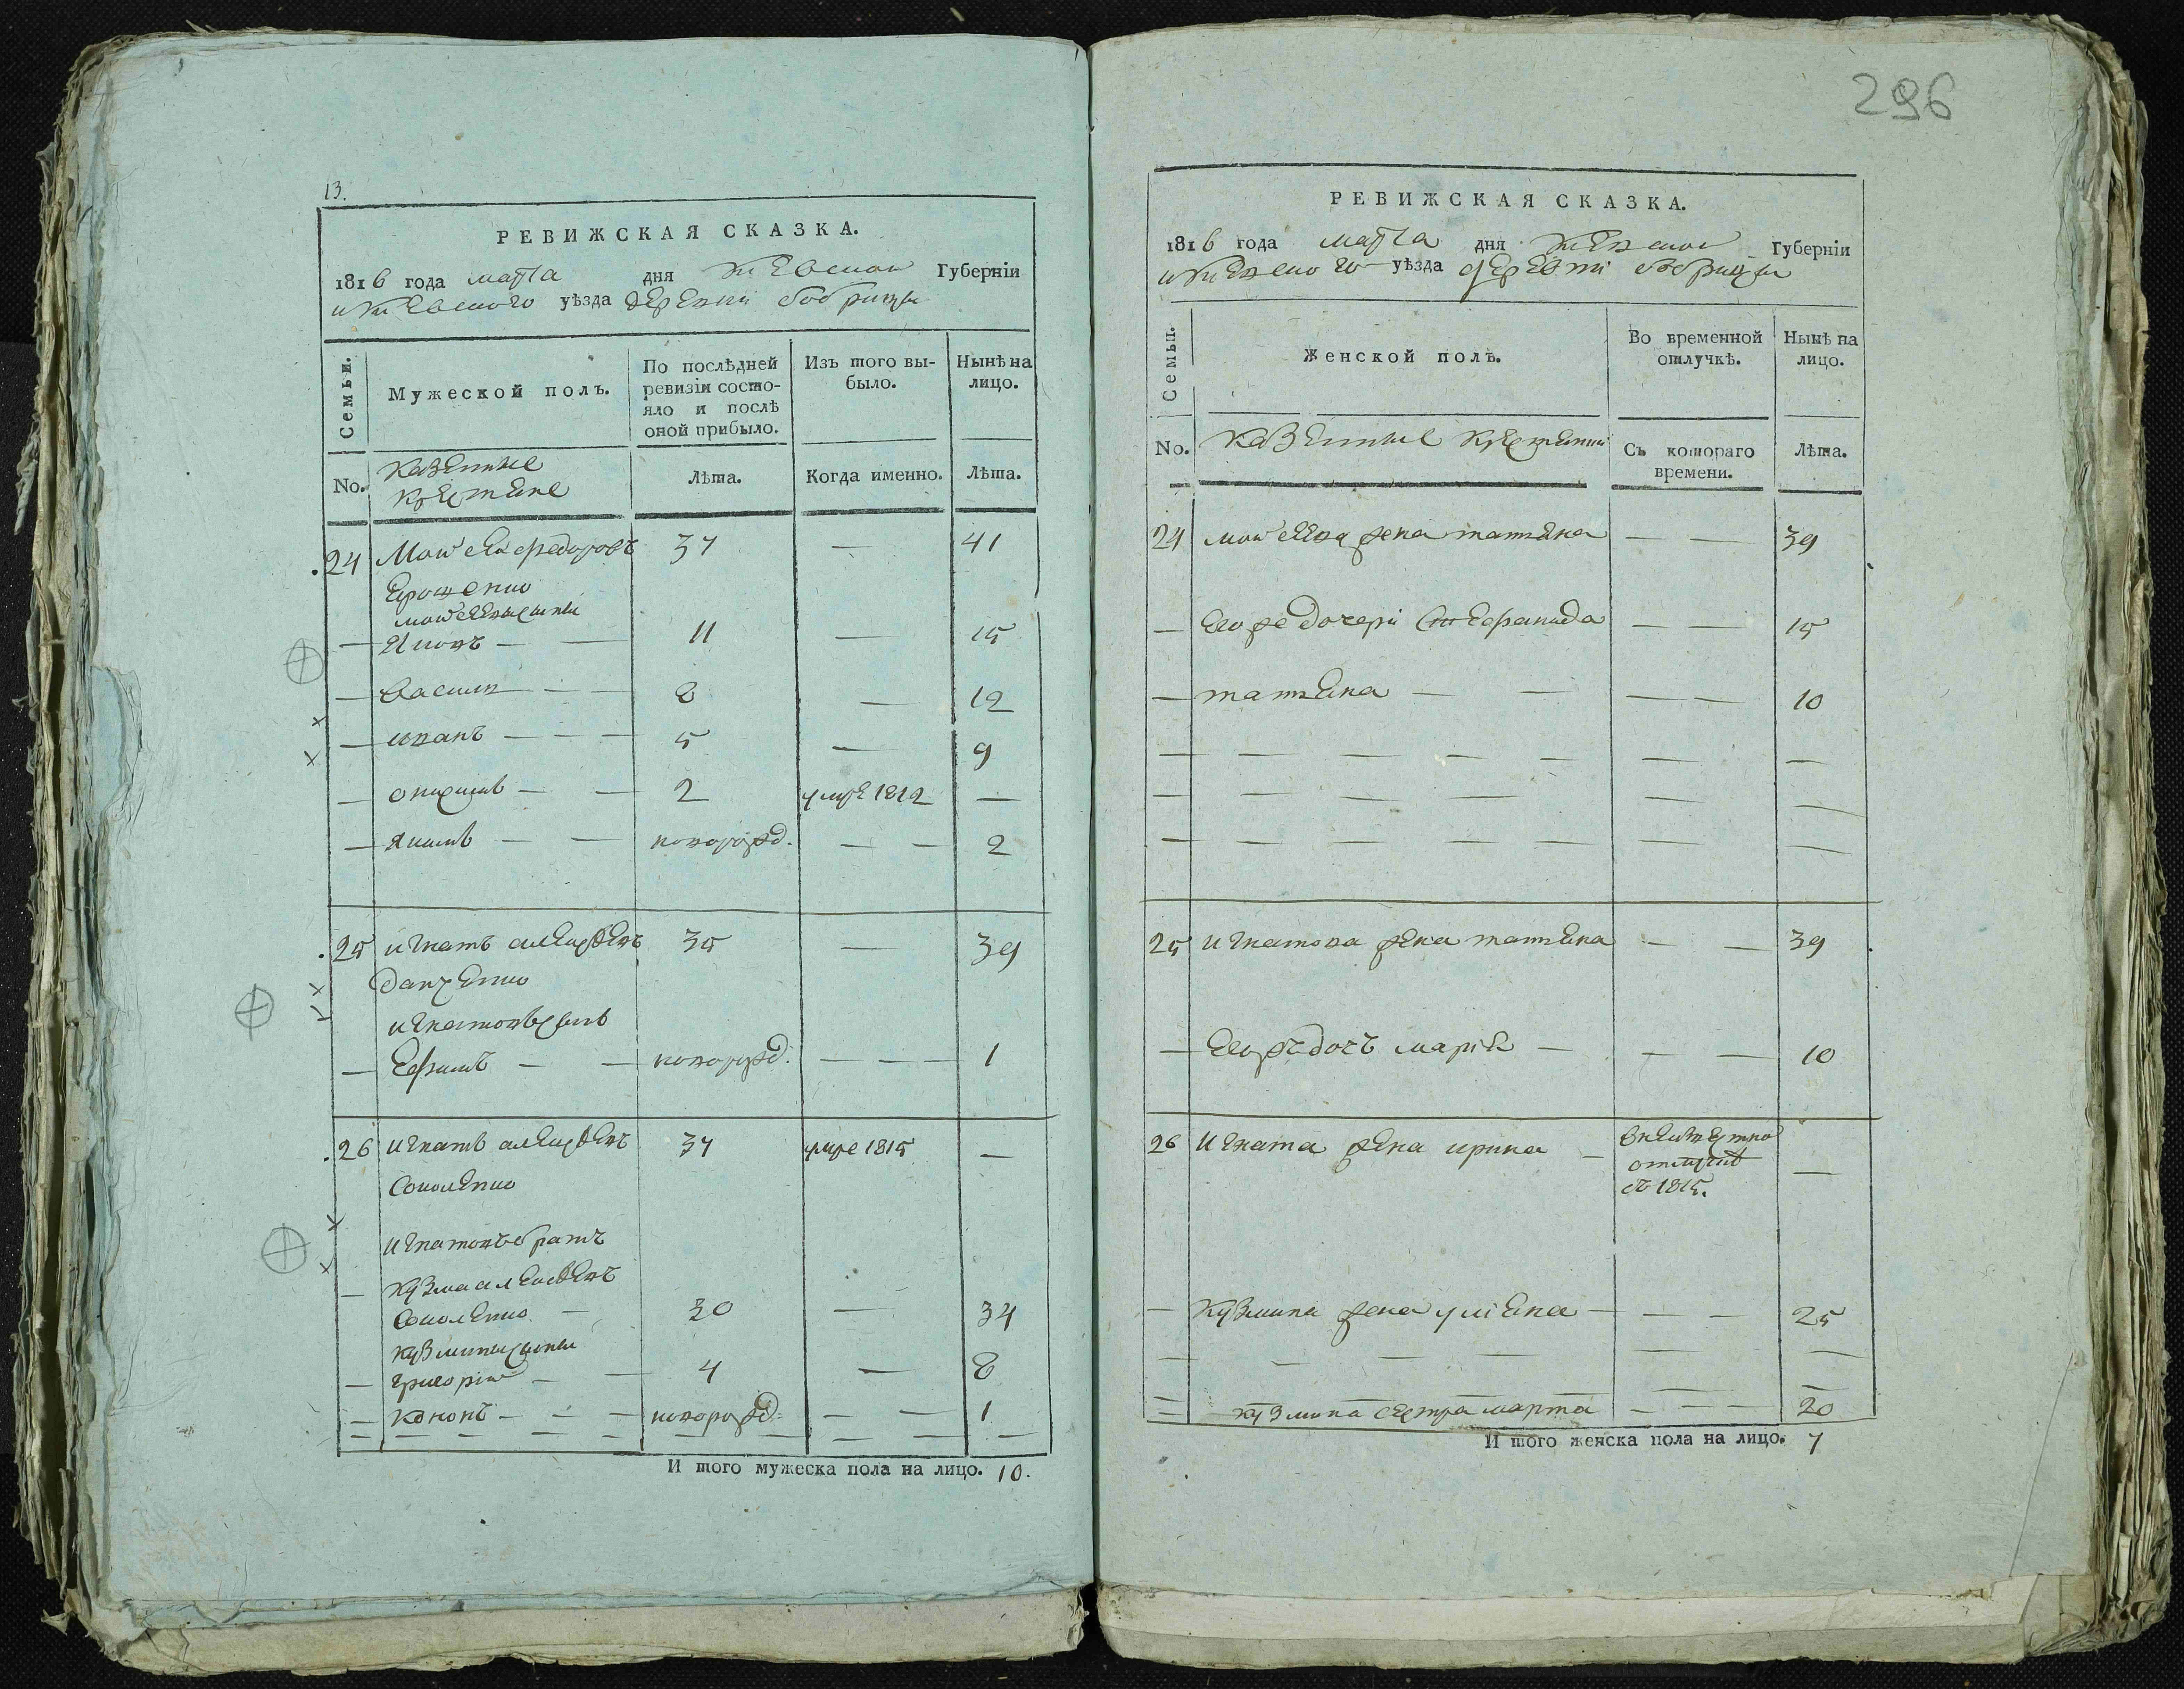 296
13.
РЕВИЖСКАЯ СКАЗКА.
1816 года марта дня Киевской Губерніи
и Киевского уѣзда деревни бобрицы
Семьи.
Мужеской полъ.
По послѣдней ревизіи состояло и послѣ оной прибыло.
Изъ того выбыло.
Нынѣ на лицо.
No.
Казенные
крестяне
Лѣта.
Когда именно.
Лѣта.
24 Мойсей федоровъ 37 — 41
Ерошенко
мойсеевы сыны
— Яковъ — — 11 — 15
— василий — — 8 — 12
— иванъ — — — 5 — 9
— онисимъ — — 2 умре 1812 —
— якимъ — — новорожд. — — 2
25 игнатъ алексѣевъ 35 — 39
данченко
игнатовъ сынъ
— Ефимъ — — новорожд. — — — 1
26 игнатъ алексѣевъ 37 умре 1815 —
Соколенко
игнатовъ братъ
— кузма алексѣевъ
Соколенко — 30 — 34
кузмины сыны
— григорій — — 4 — 8
— кононъ — — — новорожд. — — 1
И того мужеска пола на лицо. 10.
РЕВИЖСКАЯ СКАЗКА.
1816 года марта дня Киевской Губерніи
и Киевского уѣзда деревни бобрицы
Семьи.
Женской полъ.
Во временной отлучкѣ.
Нынѣ на лицо.
No.
Казенные крестяни
Съ котораго времени.
Лѣта.
24 мойсеева жена татяна — — 39
— Его же дочери Стефанида — — 15
— татяна — — — — 10
25 игнатова жена татяна — — 39
— Его жъ дочъ марія — — — 10
26 игната жена ирина —
съ 1815. —
— Кузмина жена уліяна — — — 25
— кузмина сестра марта — — — 20
И того женска пола на лицо. 7